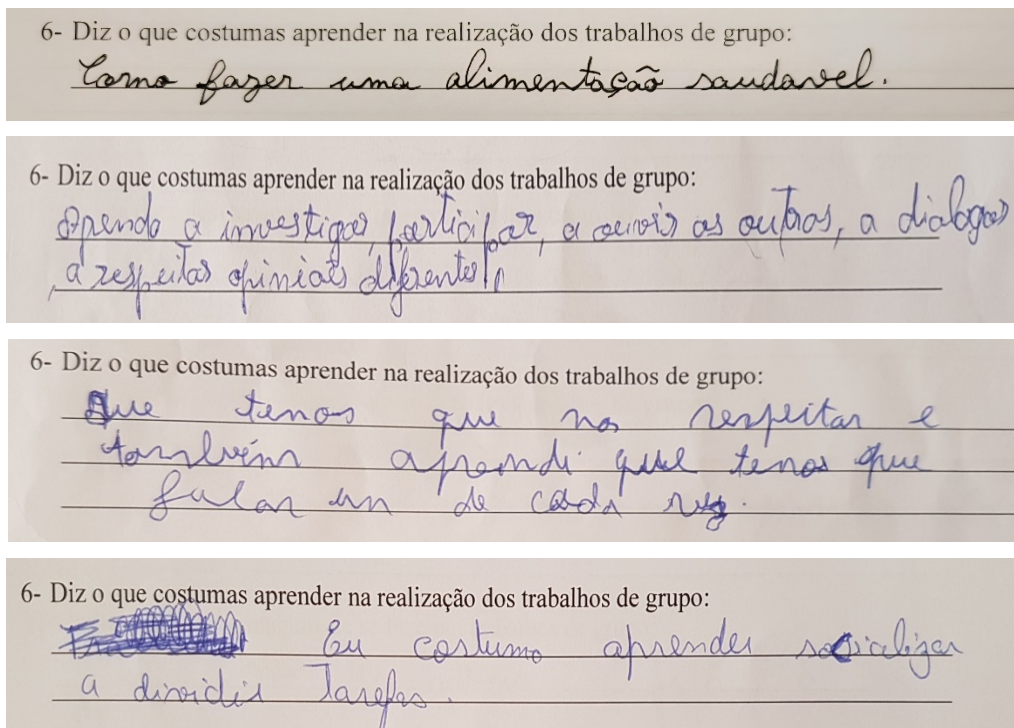 6- Diz o que costumas aprender na realização dos trabalhos de grupo:
Como fazer uma alimentação saudavel.
6- Diz o que costumas aprender na realização dos trabalhos de grupo:
Aprendo a investigar, participar, a ouvir os outros, a dialogar
, a respeitar opiniões diferentes
6- Diz o que costumas aprender na realização dos trabalhos de grupo:
Que tenos que nos respeitar e
tambvém aprendi que tenos que
falar un de cada vez.
6- Diz o que costumas aprender na realização dos trabalhos de grupo:
Eu costumo aprender socializar
a dividir Tarefas.